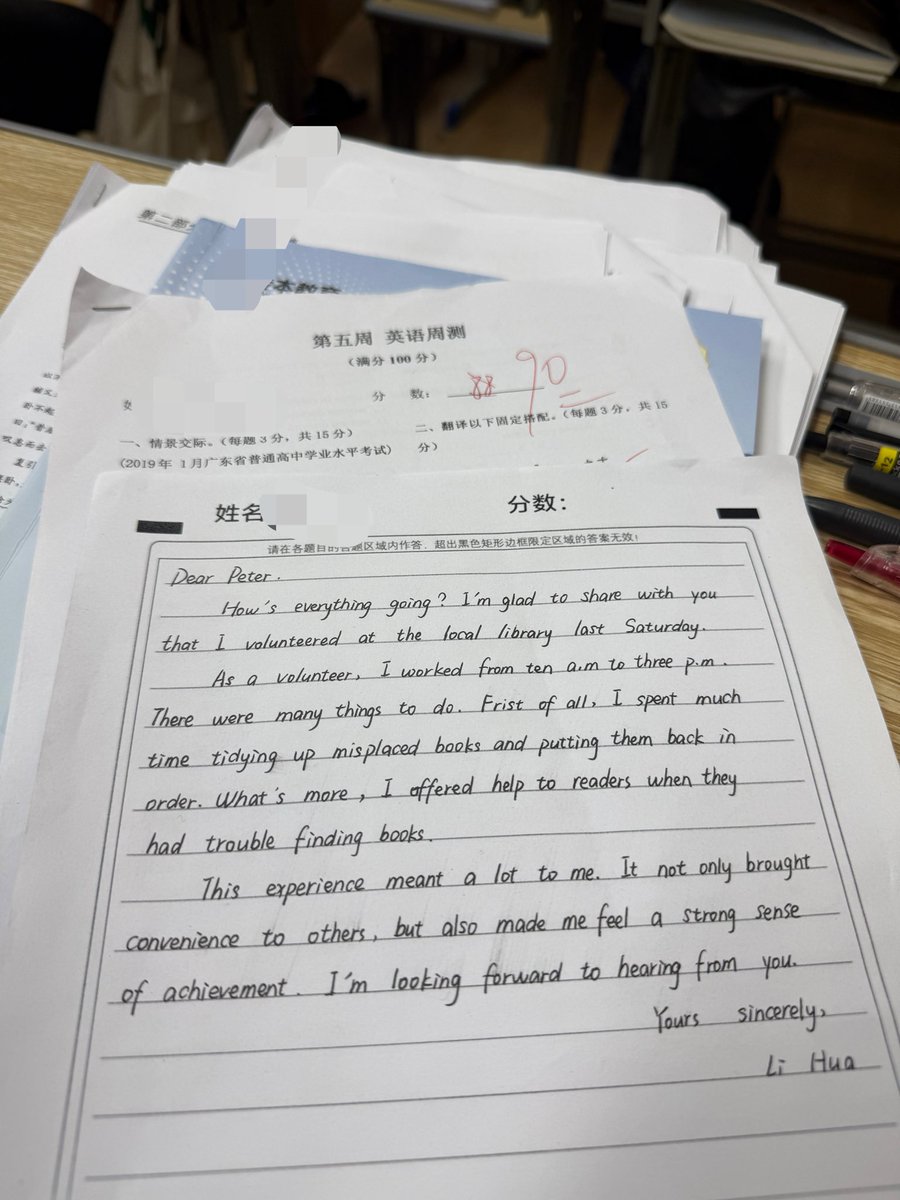 第二部
第五周 英语周测
（满分 100 分）
分 数： 88 90
一、情景交际。（每题 3 分，共 15 分）
（2019 年 1 月广东省普通高中学业水平考试）
二、翻译以下固定搭配。（每题 3 分，共 15
分）
姓名
分数：
请在各题目的答题区域内作答，超出黑色矩形边框限定区域的答案无效！
Dear Peter.
How's everything going? I'm glad to share with you
that I volunteered at the local library last Saturday.
As a volunteer, I worked from ten a.m to three p.m.
There were many things to do. Frist of all, I spent much
time tidying up misplaced books and putting them back in
order. What's more, I offered help to readers when they
had trouble finding books.
This experience meant a lot to me. It not only brought
convenience to others, but also made me feel a strong sense
of achievement. I'm looking forward to hearing from you.
Yours sincerely,
Li Hua